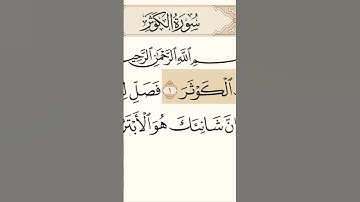 سُورَةُ الكَوْثَرِ
ـمِ ٱللَّهِ ٱلرَّحْمَٰنِ ٱلرَّحِيـ
ٱلْكَوْثَرَ ١ فَصَلِّ لِـ
شَانِئَكَ هُوَ ٱلْأَبْتَرُ